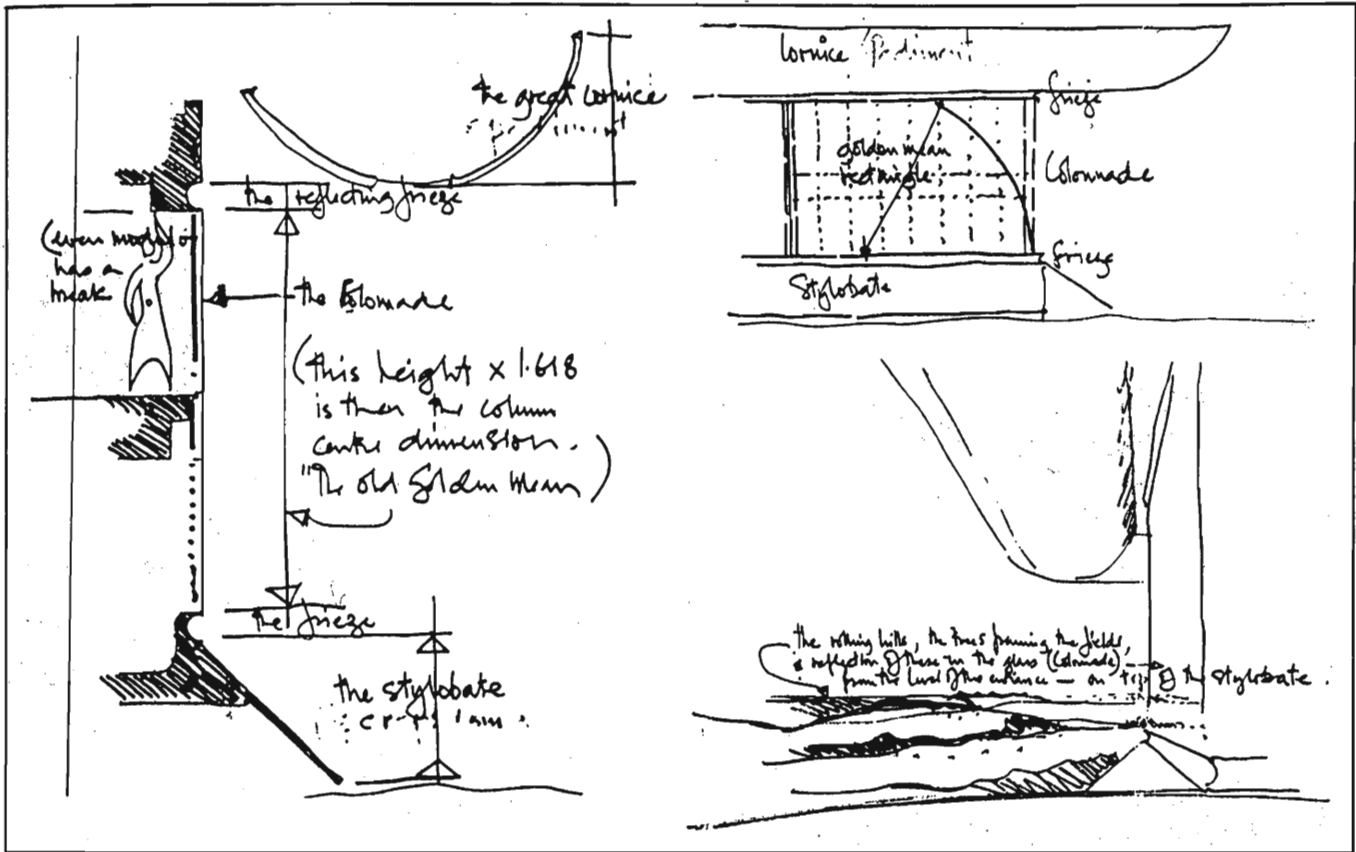 the great cornice
the reflecting frieze
(even modulor
has a
break
the Colonnade
(this height x 1.618
is then the column
centre dimension.
"The old Golden Mean)
the frieze
the stylobate
Cornice Pediment
frieze
golden mean
rectangle
Colonnade
frieze
Stylobate
the rolling hills, the trees framing the fields,
a reflection of these in the glass (Colonnade)
from the level of the entrance — on top of the stylobate.